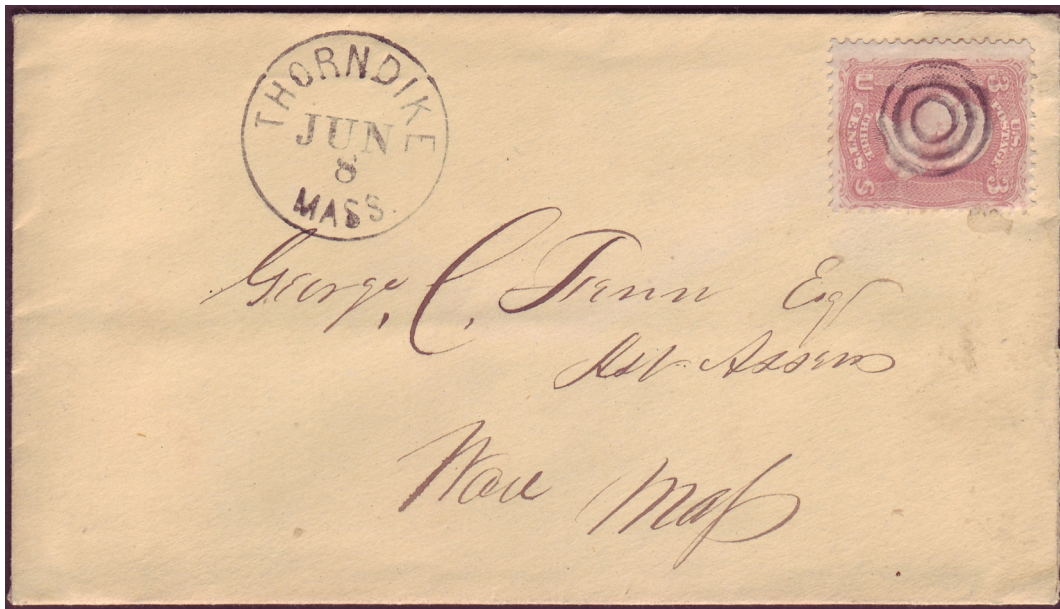 THORNDIKE
JUN
8
MASS.
U 3
U.S. POSTAGE
THREE
CENTS
S 3
George, C, Fenn Esq
Ast. Assess
Ware Mass